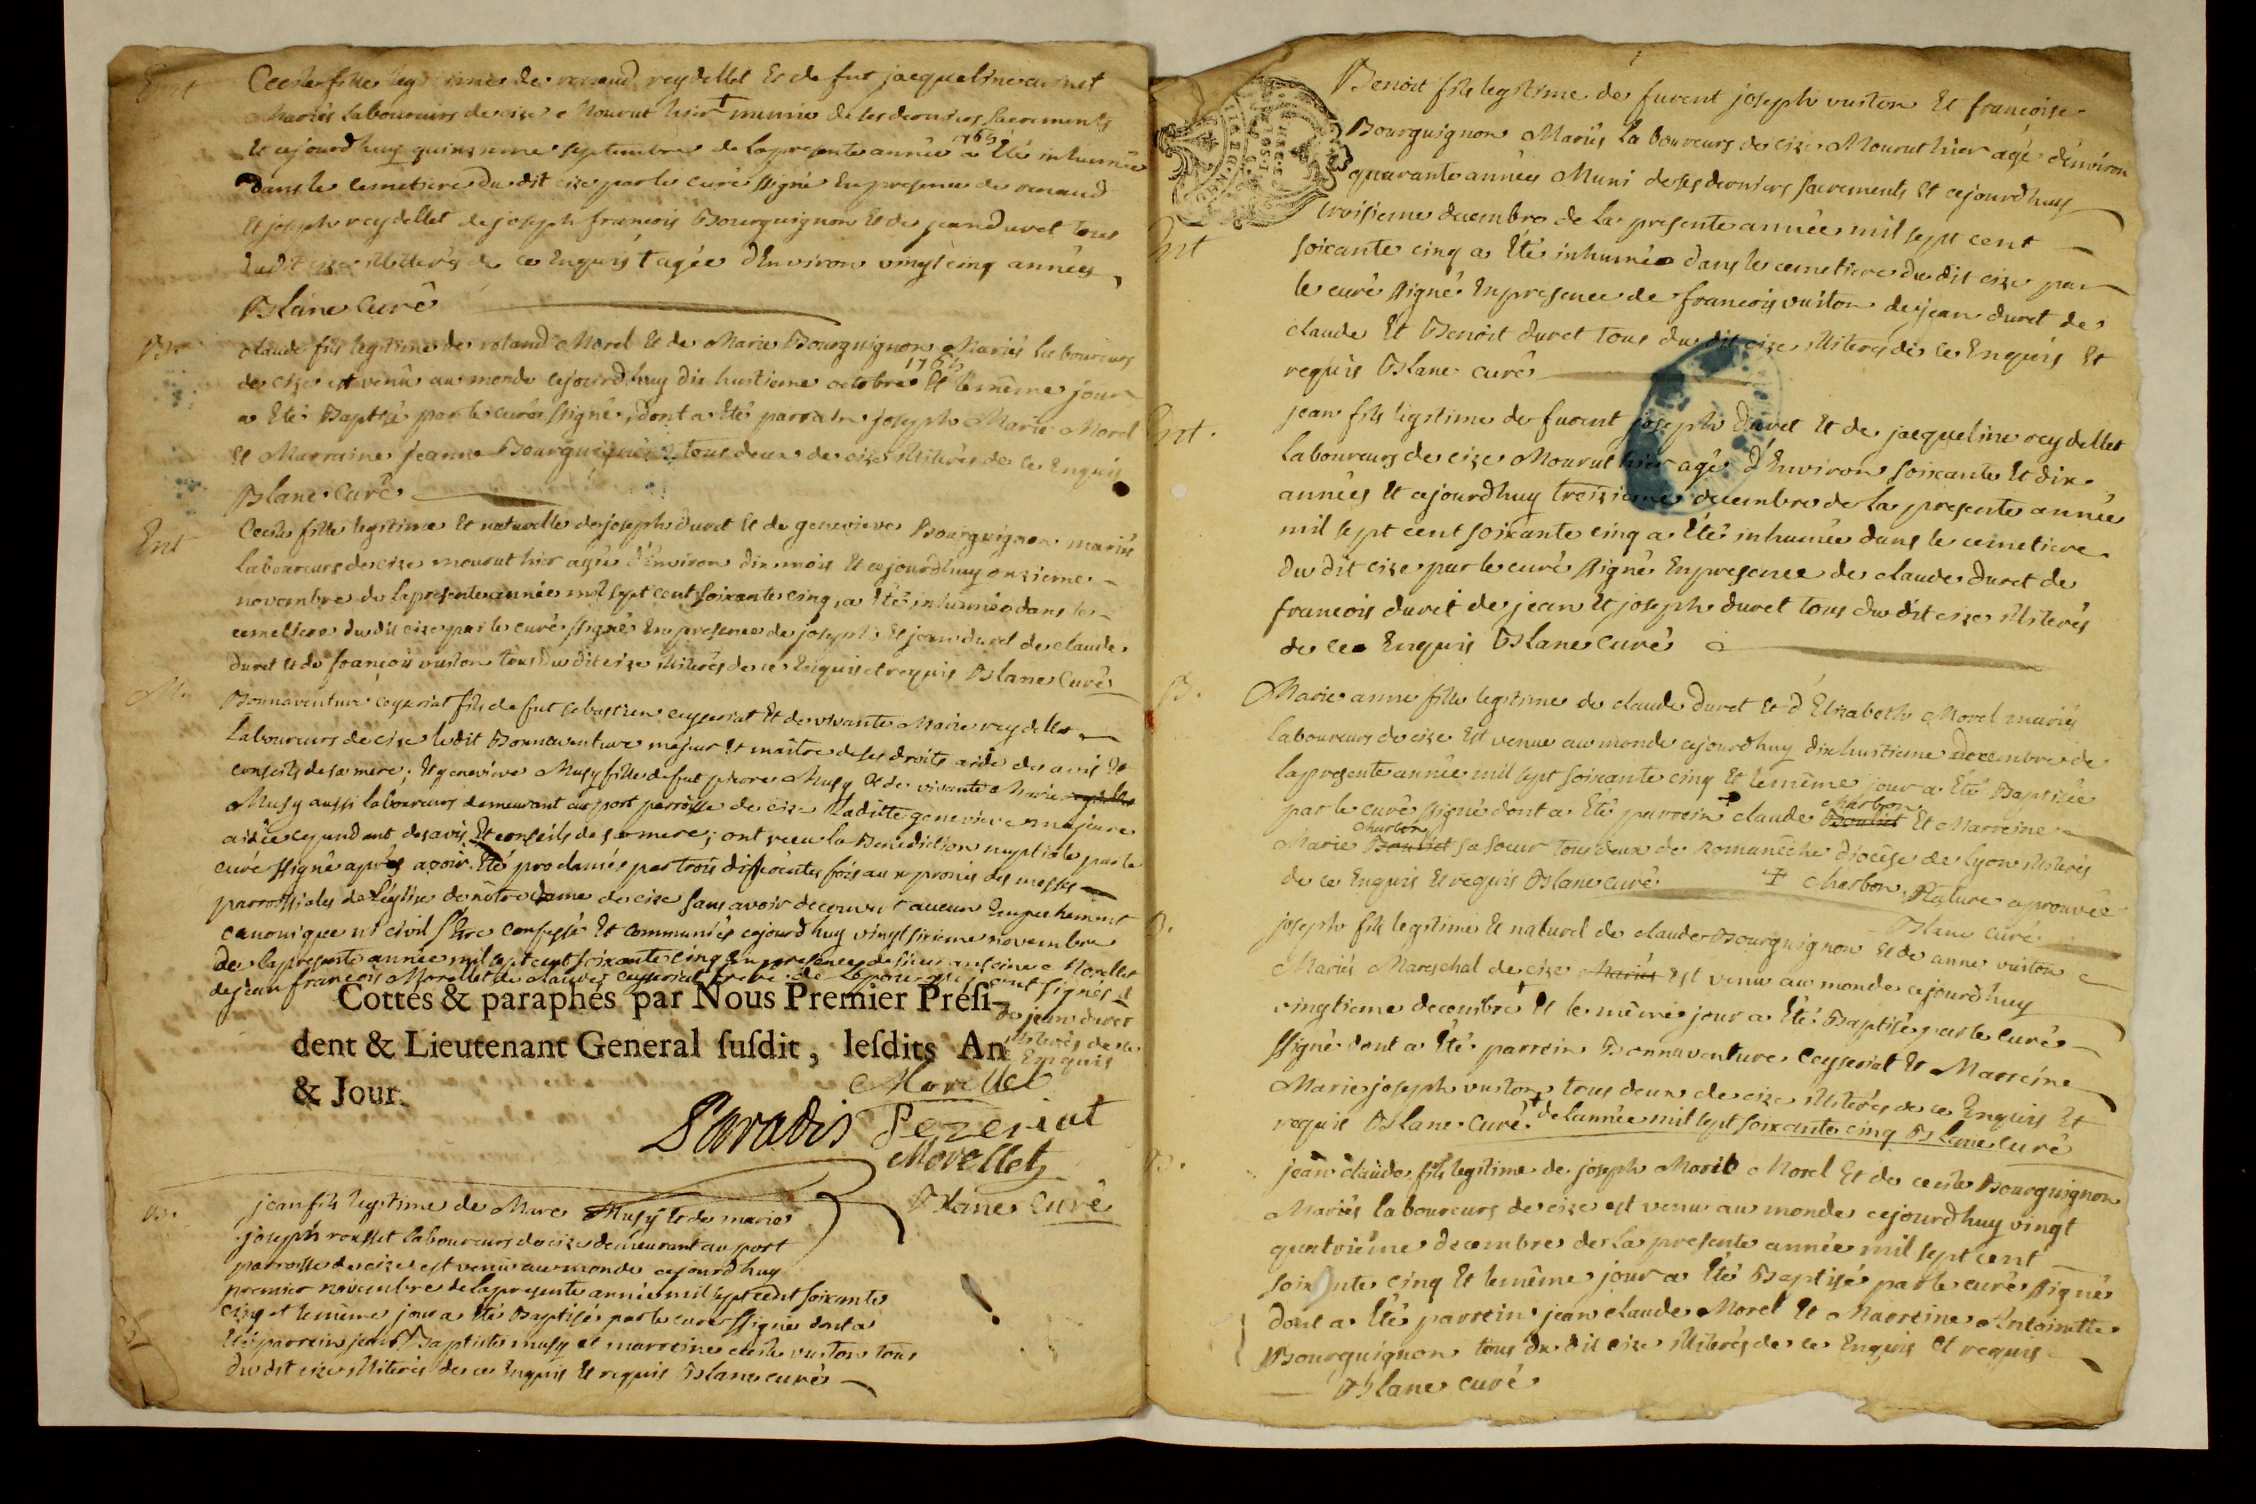 Ent
Cecile fille legitime de renaud reydellet Et de fut jacqueline
Mariés laboureurs de cize Mourut hier + munie de ses derniers sacrements
Et cejourdhuy quinzieme septembre de la presente année 1765 a Eté inhumée
dans le cemetiere du dit cize par le curé ssigné En presence de renaud
Et joseph reydellet de joseph francois Bourguignon Et de jean duret tous
du dit cize illiterés de ce Enquis + agée d'Environ vingt cinq années
Blanc Curé
B.
claude fils legitime de roland Morel Et de Marie Bourguignon Mariés laboureurs
de cize est venu au monde cejourdhuy dix huitieme octobre 1765 Et le même jour
a Eté Baptisé par le curé ssigné, dont a Eté parrain joseph Marie Morel
Et Marraine jeanne Bourguignon tous deux de cize illiterés de ce Enquis
Blanc Curé
Ent
Cecile fille legitime Et naturelle de joseph duret Et de genevieve Bourguignon mariés
laboureurs de cize mourut hier agée d'Environ dix mois Et cejourdhuy onzieme
novembre de la presente année mil sept cent soixante cinq, a Eté inhumée dans le
cemetiere du dit cize par le curé ssigné En presence de joseph Et jean duret de claude
duret Et de françois vuiton tous du dit cize illiterés de ce Enquis et requis Blanc Curé
M.
Bonnaventure ceyzeriat fils de fut sebastien ceyzeriat Et de vivante Marie reydellet
Laboureurs de cize le dit Bonnaventure majeur Et maître de ses droits aidé des avis Et
conseils de sa mere; Et genevieve Musy fille de fut pierre Musy Et de vivante Marie
Musy aussi laboureurs demeurant au port parroisse de cize la dite genevieve majeure
aidée cependant des avis Et conseils de sa mere; ont receu la Benediction nuptiale par le
curé ssigné après avoir Eté proclamés par trois differentes fois aux prônes des messes
parroissiales de L'église de nôtre dame de cize sans avoir decouvert aucun Empechement
canonique ni civil s'être confessé Et communiés cejourdhuy vingt sixieme novembre
de la presente année mil sept cent soixante cinq En presence de sieur anseime Morellet
de jean francois Morellet de claude ceyzeriat frère de L'epoux qui ont signés et
de jean duret
illiterés de ce
Enquis
Cottés & paraphés par Nous Premier Prési-
dent & Lieutenant General susdit, lesdits An
& Jour.
Morellet
Paradis Sezeriat
Morellet
Blanc Curé
B.
jean fils legitime de Marc Musy Et de marie
joseph rousset laboureurs de cize demeurant au port
parroisse de cize est venu au monde cejourdhuy
premier novembre de la presente année mil sept cent soixante
cinq et le même jour a Eté Baptisé par le curé ssigné dont a
Eté parrein jean Baptiste musy et marreine cecile vuiton tous
du dit cize illiterés de ce Enquis Et requis Blanc curé
Ent
Benoit fils legitime de furent joseph vuiton Et francoise
Bourguignon Mariés laboureurs de cize Mourut hier agé d'environ
quarante années Muni de ses derniers sacrements Et cejourdhuy
troisieme decembre de la presente année mil sept cent
soixante cinq a Eté inhumé dans le cemetiere du dit cize par
le curé ssigné En presence de francois vuiton de jean duret de
claude Et Benoit duret tous du dit cize illiterés de ce Enquis Et
requis Blanc curé
Ent.
jean fils legitime de furent joseph duret Et de jacqueline reydellet
laboureurs de cize Mourut hier agé d'Environ soixante Et dix
années Et cejourdhuy troisieme decembre de la presente année
mil sept cent soixante cinq a Eté inhumée dans le cemetiere
du dit cize par le curé ssigné En presence de claude duret de
francois duret de jean Et joseph duret tous du dit cize illiterés
de ce Enquis Blanc curé
B.
Marie anne fille legitime de claude duret Et d'Elizabeth Morel mariés
laboureurs de cize Est venue au monde cejourdhuy dix huitieme decembre de
la presente année mil sept soixante cinq Et le même jour a Eté Baptisée
par le curé ssigné dont a Eté parrein + claude Charbon Bouliet Et Marreine
Marie Charbon Bouliet sa soeur tous deux de Romanêche diocèse de lyon illiterés
de ce Enquis Et requis Blanc curé + Charbon Rature aprouvée
Blanc curé
B.
joseph fils legitime Et naturel de claude Bourguignon Et de anne vuiton
Mariés Mareschal de cize Mariés est venu au monde cejourdhuy
vingtieme decembre + Et le même jour a Eté Baptisé par le curé
ssigné dont a Eté parrein Bonnaventure Ceyzeriat Et Marreine
Marie joseph vuiton tous deux de cize illiterés de ce Enquis Et
requis Blanc Curé. + de l'année mil sept soixante cinq Blanc curé
B.
jean claude fils legitime de joseph Marie Morel Et de cecile Bourguignon
Mariés laboureurs de cize est venu au monde cejourdhuy vingt
quatrième decembre de la presente année mil sept cent
soixante cinq Et le même jour a Eté Baptisé par le curé ssigné
dont a Eté parrein jean claude Morel Et Marreine Antoinette
Bourguignon tous du dit cize illiterés de ce Enquis Et requis
Blanc curé